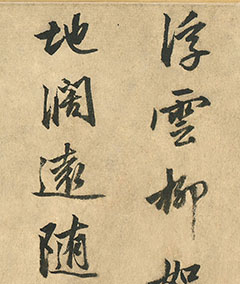 浮雲柳絮
地闊遠隨